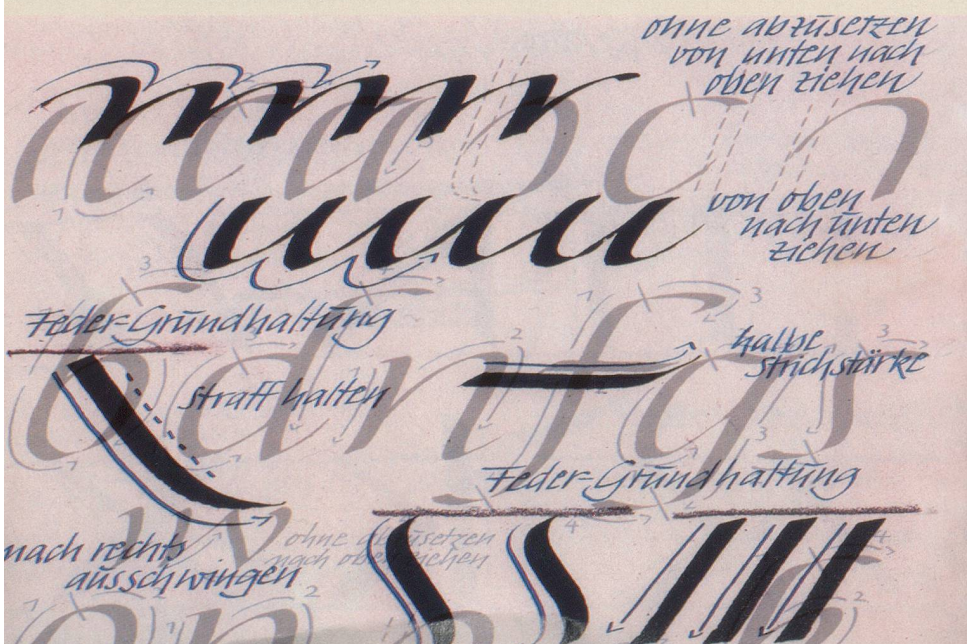 ohne abzusetzen
von unten nach
oben ziehen
von oben
nach unten
ziehen
Feder-Grundhaltung
straff halten
halbe
Strichstärke
Feder-Grundhaltung
nach rechts
ausschwingen
ohne abzusetzen
nach oben ziehen